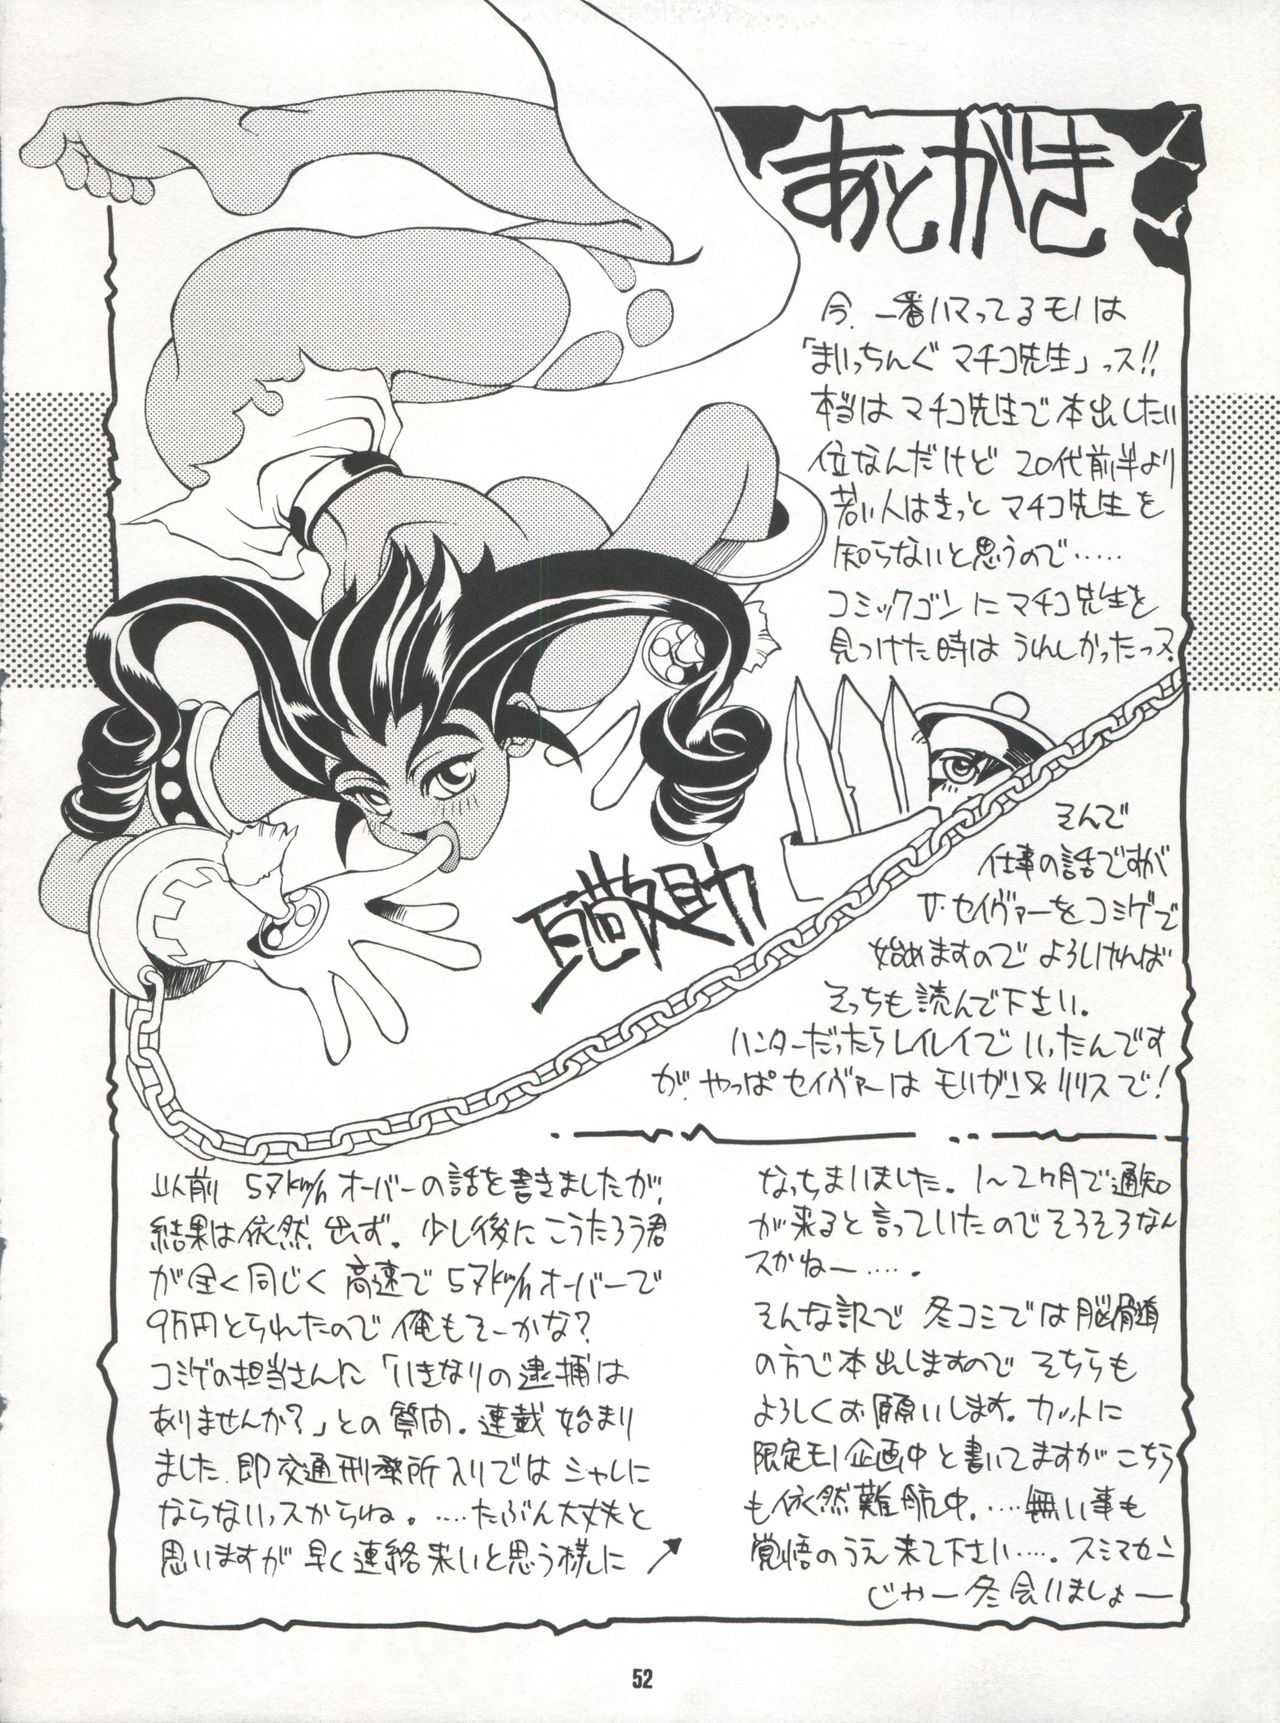 あとがき
今、一番ハマってるモノは
「まいっちんぐ マチコ先生」っス!!
本当は マチコ先生で 本出したい
位なんだけど 20代前半より
若い人はきっと マチコ先生を
知らないと思うので……
コミックゴンに マチコ先生を
見つけた時は うれしかったっス。
そんで
仕事の話ですが
ザ・セイヴァーを コミゲで
始めますので よろしければ
そっちも 読んで下さい。
ハンターだったら レイレイで いったんです
が、やっぱ セイヴァーは モリガン& リリスで!
以前 57km/h オーバーの話を書きましたが、
結果は依然 出ず。少し後に こうたろう君
が全く同じく 高速で 57km/h オーバーで
9万円とられたので 俺もそーかな?
コミゲの担当さんに 「いきなりの逮捕は
ありませんか?」との質問。連載 始まり
ました 即交通刑務所入りでは シャレに
ならないっスからね。……たぶん大丈夫と
思いますが 早く連絡来いと思う様に
なっちまいました。1〜2ヶ月で通知
が来ると言っていたので そろそろなん
スかねー……。
そんな訳で 冬コミでは 脳髄
の方で本出しますので そちらも
よろしくお願いします。カットに
限定モノ企画中と書いてますが こちら
も依然難航中。……無い事も
覚悟のうえ来て下さい……。スミマセン
じゃー 冬会いましょー
52